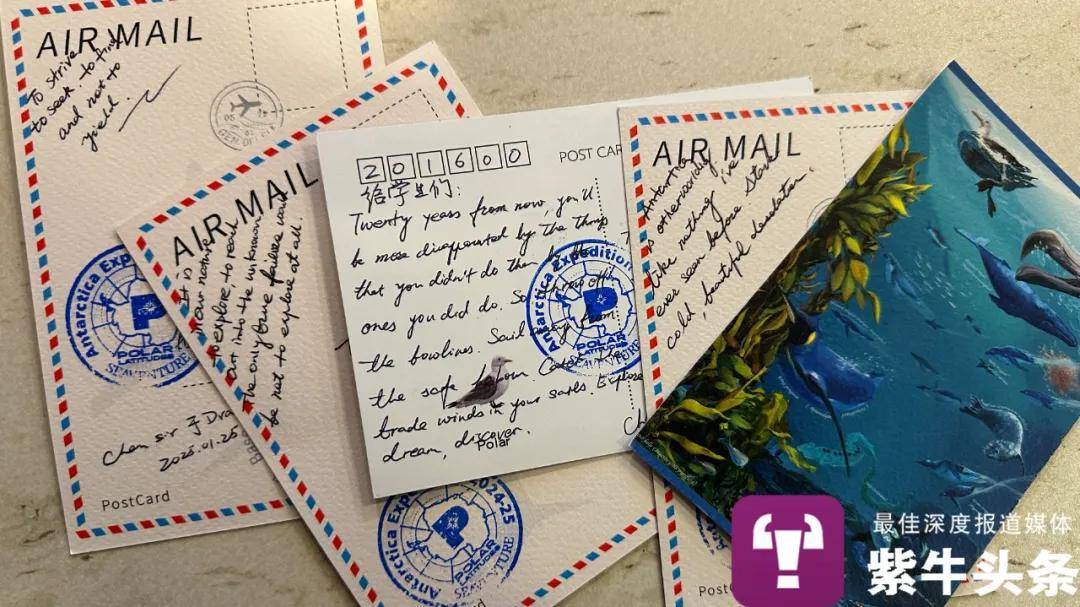 AIR MAIL
To strive
to seek to find
and not to
yield.
Antarctica Expedition
P
POLAR
LATITUDES
SEAVENTURE
Chen sir 于Dra
2025.01.25
PostCard
AIR MAIL
It is
in our nature
to explore, to reach
out into the unknown
The only true failure would
be not to explore at all.
Antarctica Exp
2024-25
P
POLAR
LATITUDES
SEAVENTURE
201600
POST CAR
给学生们:
Twenty years from now, you'll
be more disappointed by the things
that you didn't do than by the
ones you did do. So throw off
the bowlines. Sail away from
the safe Catch the
trade winds in your sails. Explore
dream, discover.
Polar
Antarctica Expedition
P
POLAR
LATITUDES
SEAVENTURE
AIR MAIL
Antarctica
is otherworldly
like nothing I've
ever seen before stark
cold, beautiful desolation.
PostC
最佳深度报道媒体
紫牛头条